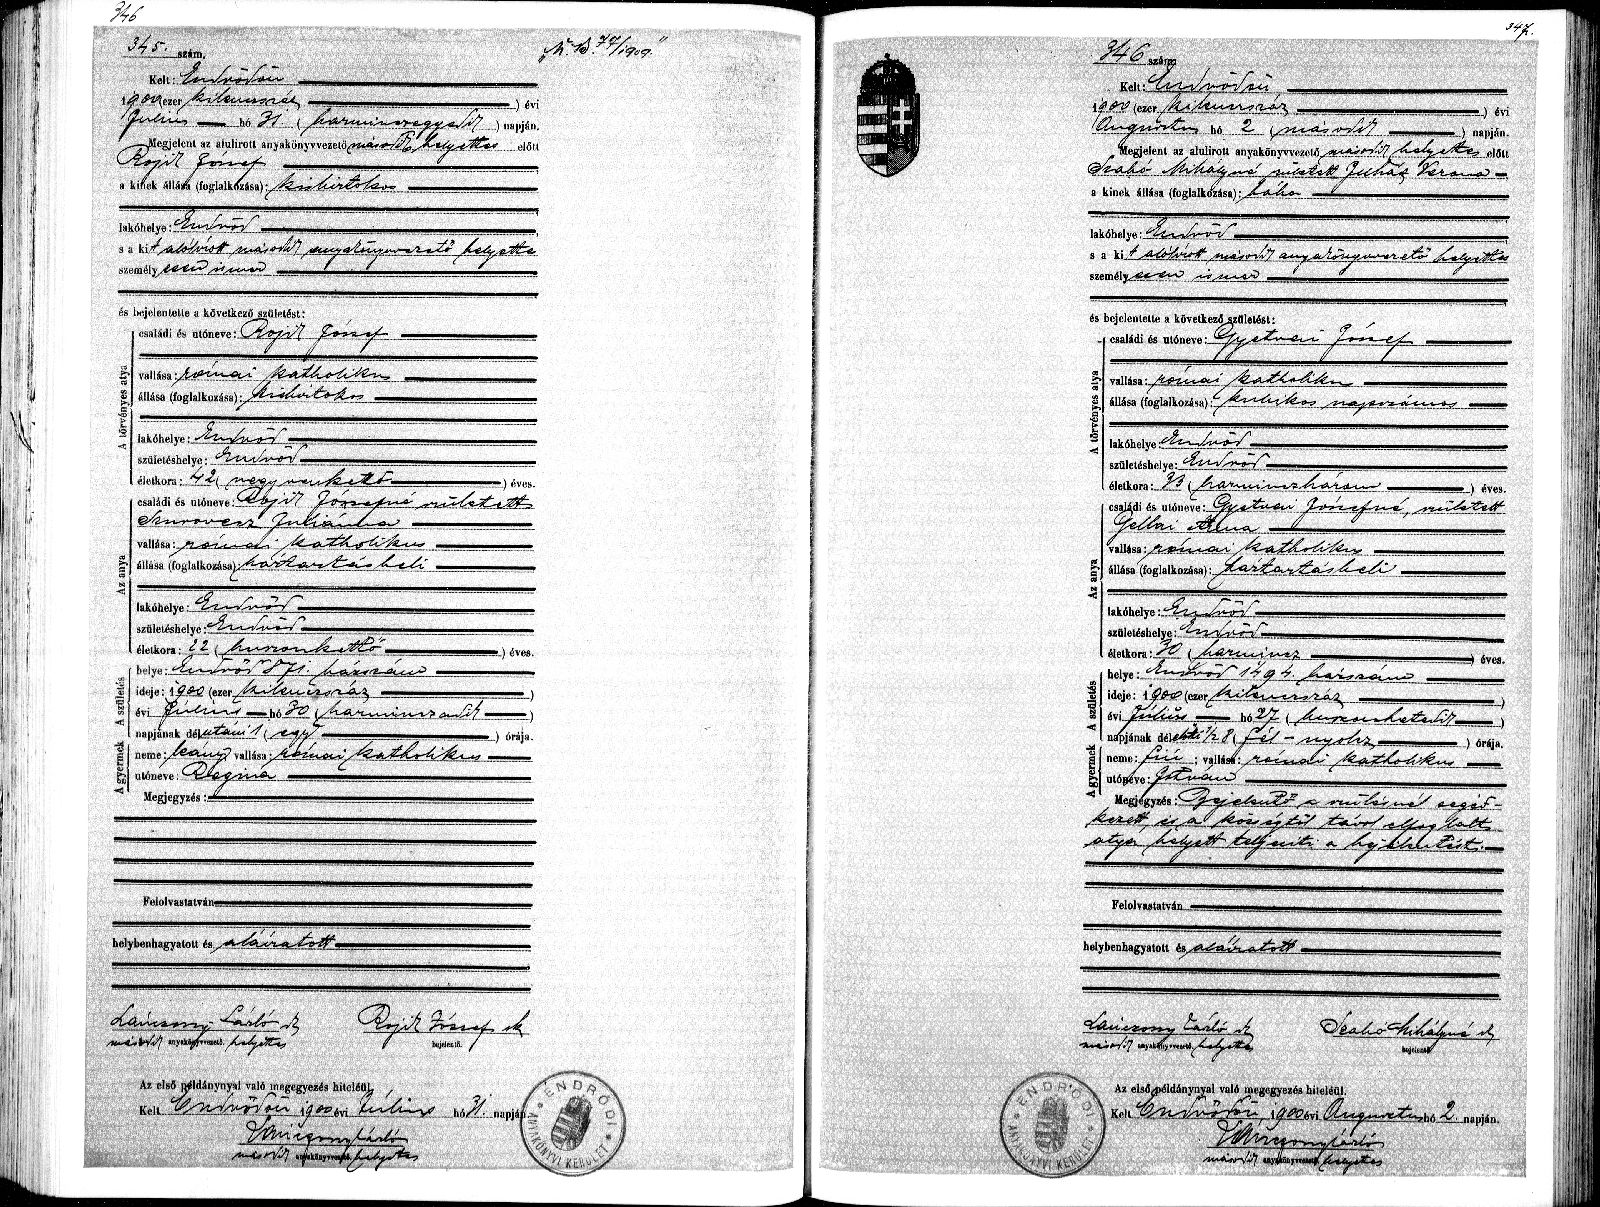 346
345. szám.
N. B. 77/1909.
Kelt: Endrődön
1900 (ezer kilencszáz ) évi
Julius hó 31 ( harminczegyedik ) napján.
Megjelent az alulirott anyakönyvvezető második helyettes előtt
Rojik József
a kinek állása (foglalkozása): kisbirtokos
lakóhelye: Endrőd
s a kit alólirott második anyakönyvvezető helyettes
személyesen ismer
és bejelentette a következő születést:
A törvényes atya
családi és utóneve: Rojik József
vallása: római katholikus
állása (foglalkozása): kisbirtokos
lakóhelye: Endrőd
születéshelye: Endrőd
életkora: 42 ( negyvenkettő ) éves.
Az anya
családi és utóneve: Rojik Józsefné született
Szurovecz Juliánna
vallása: római katholikus
állása (foglalkozása): háztartásbeli
lakóhelye: Endrőd
születéshelye: Endrőd
életkora: 22 ( huszonkettő ) éves.
A születés
helye: Endrőd 871. házszám
ideje: 1900 (ezer kilencszáz )
évi Július hó 30 ( harminczadik )
napjának délutáni 1 ( egy ) órája.
A gyermek
neme: leány; vallása: római katholikus
utóneve: Regina
Megjegyzés:
Felolvastatván
helybenhagyatott és aláíratott
Lánczony László sk Rojik József sk
második anyakönyvvezető. helyettes bejelentő.
Az első példánynyal való megegyezés hiteléül.
Kelt Endrődön 1900 évi Július hó 31. napján.
Lánczony László
második anyakönyvvezető helyettes
ENDRŐDI ANYAKÖNYVI KERÜLET
347.
346 szám
Kelt: Endrődön
1900 (ezer kilencszáz ) évi
Augusztus hó 2 ( második ) napján.
Megjelent az alulirott anyakönyvvezető második helyettes előtt
Szabó Mihályné született Juhász Verona
a kinek állása (foglalkozása): bába
lakóhelye: Endrőd
s a kit alólirott második anyakönyvvezető helyettes
személyesen ismer
és bejelentette a következő születést:
A törvényes atya
családi és utóneve: Gyetvai József
vallása: római katholikus
állása (foglalkozása): kubikos napszámos
lakóhelye: Endrőd
születéshelye: Endrőd
életkora: 33 ( harminczhárom ) éves.
Az anya
családi és utóneve: Gyetvai Józsefné, született
Gellai Anna
vallása: római katholikus
állása (foglalkozása): háztartásbeli
lakóhelye: Endrőd
születéshelye: Endrőd
életkora: 30 ( harmincz ) éves.
A születés
helye: Endrőd 1494. házszám
ideje: 1900 (ezer kilencszáz )
évi Július hó 27 ( huszonhetedik )
napjának délelőtti 1/2 8 ( fél-nyolcz ) órája.
A gyermek
neme: fiú; vallása: római katholikus
utóneve: István
Megjegyzés: Bejelentő a szülésnél segéd-
kezett, és a községtől távol elfoglalt
atya helyett teljesíti a bejelentést.
Felolvastatván
helybenhagyatott és aláíratott
Lánczony László sk Szabó Mihályné sk
második anyakönyvvezető. helyettes bejelentő
Az első példánynyal való megegyezés hiteléül.
Kelt Endrődön 1900 évi Augusztus hó 2. napján.
Lánczony László
második anyakönyvvezető helyettes
ENDRŐDI ANYAKÖNYVI KERÜLET